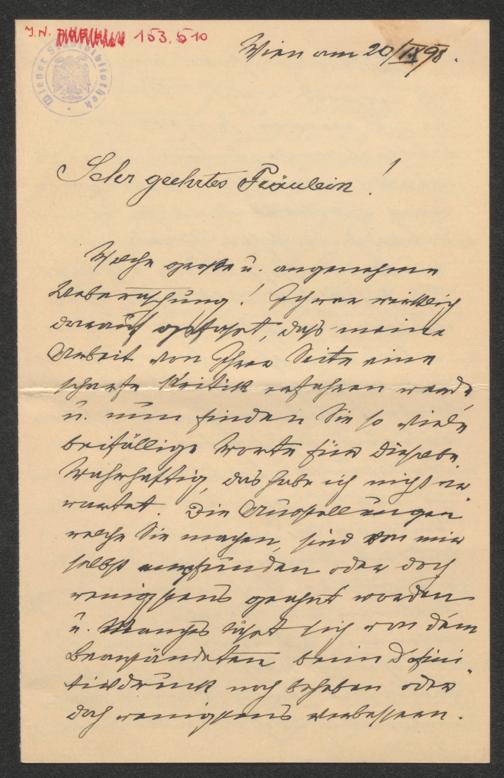 J.N. 153.510
Wiener Stadtbibliothek
Wien am 20/IX 98.
Sehr geehrtes Fräulein!
Welche große u. angenehme
Ueberraschung! Ich war wirklich
darauf gefaßt, daß meine
Arbeit von Ihrer Seite eine
scharfe Kritik erfahren werde
u. nun finden Sie so viele
beifällige Worte für dieselbe.
Wahrhaftig, das habe ich nicht er
wartet. Die Ausstellungen
welche Sie machen, sind von mir
selbst empfunden oder doch
wenigstens geahnt worden
u. Manches läßt sich von dem
Beanständeten beim Defini
tivdruck noch beheben oder
doch wenigstens verbessern.